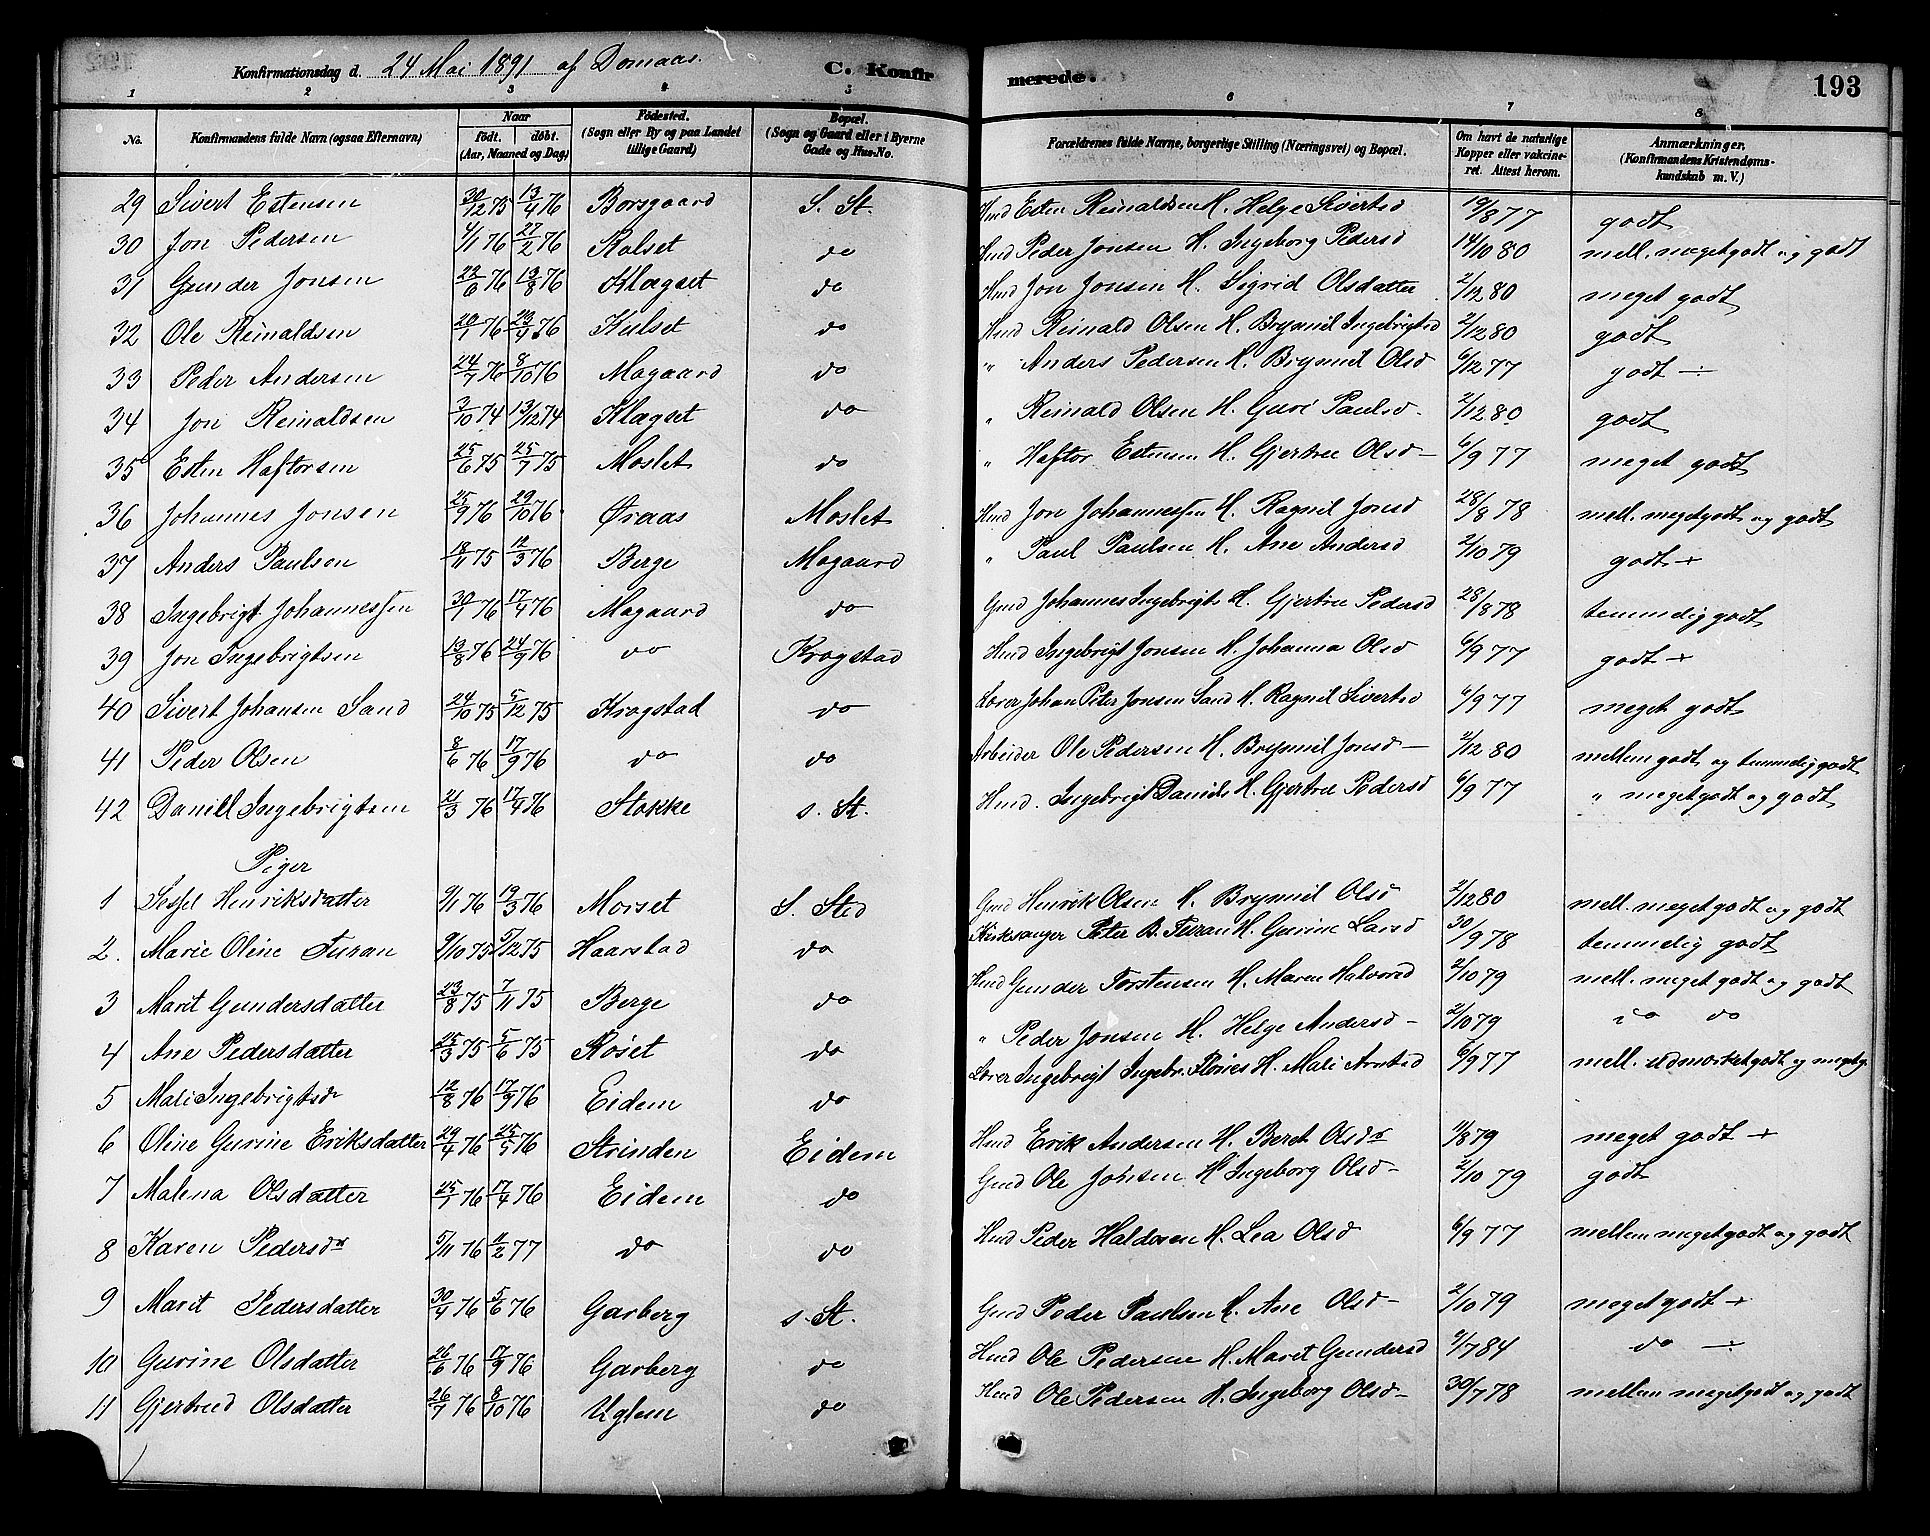 Konfirmationsdag d. 24 Mai 1891 af Domaas. C. Konfirmerede. 193
1 2 3 4 5 6 7 8
No. Konfirmandens fulde Navn (ogsaa Efternavn) Naar födt. döbt. (Aar, Maaned og Dag) Födested. (Sogn eller By og paa Landet tillige Gaard) Bopæl. (Sogn og Gaard eller i Byerne Gade og Hus-No. Forældrenes fulde Navne, borgerlige Stilling (Næringsvei) og Bopæl. Om havt de naturlige Kopper eller vakcineret. Attest herom. Anmærkninger. (Konfirmandens Kristendomskundskab m. V.)
29 Sivert Estensen 30/12 75 13/4 76 Borsgaard S. St. Hmd Esten Reinaldsen H. Helge Sivertsd 19/8 77 godt
30 Jon Pedersen 4/1 76 27/2 76 Kalset do Hmd Peder Jonsen H. Ingeborg Pedersd 14/10 80 mell. megetgodt og godt
31 Gunder Jonsen 22/6 76 13/8 76 Klægset do Hmd Jon Jonsen H. Sigrid Olsdatter 2/12 80 meget godt
32 Ole Reinaldsen 20/1 76 23/4 76 Kulset do Hmd Reinald Olsen H. Brynnil Ingebrigtsd 2/12 80 godt
33 Peder Andersen 24/7 76 8/10 76 Mogaard do " Anders Pedersen H. Brynnil Olsd 6/12 77 godt ÷
34 Jon Reinaldsen 3/10 74 13/12 74 Klægset do " Reinald Olsen H. Guri Paulsd. 2/12 80 godt
35 Esten Haftorsen 25/6 75 25/7 75 Moslet do " Haftor Estensen H. Gjertru Olsd 6/9 77 meget godt
36 Johannes Jonsen 25/9 76 29/10 76 Øraas Moslet Hmd Jon Johannessen H. Ragnil Jonsd 28/8 78 mell. megetgodt og godt
37 Anders Paulsen 18/11 75 12/3 76 Berge Mogaard " Paul Paulsen H. Ane Andersd 2/10 79 godt +
38 Ingebrigt Johannessen 30/1 76 17/4 76 Mogaard do Gmd Johannes Ingebrigts H. Gjertru Pedersd 28/8 78 temmelig godt
39 Jon Ingebrigtsen 13/8 76 24/9 76 do Krogstad Hmd Ingebrigt Jonsen H. Johanna Olsd 6/9 77 godt +
40 Sivert Johansen Sand 24/10 75 5/12 75 Krogstad do Lærer Johan Peter Jonsen Sand H. Ragnil Sivertsd 6/9 77 meget godt
41 Peder Olsen 8/6 76 17/9 76 do do Arbeider Ole Pedersen H. Brynnil Jonsd 2/12 80 mellem godt og temmelig godt
42 Daniel Ingebrigtsen 21/3 76 17/4 76 Stokke s. St. Hmd. Ingebrigt Daniels H. Gjertru Pedersd 6/9 77 " megetgodt og godt
Piger
1 Sessel Henriksdatter 9/1 76 19/3 76 Morset S. Sted Gmd Henrik Olsen H. Brynnil Olsd 2/12 80 mell. megetgodt og godt
2. Marie Oline Furan 9/10 75 5/12 75 Haarstad do Kirksanger Peter B. Furan H. Gurine Larsd 30/9 78 temmelig godt
3 Marit Gundersdatter 23/8 75 7/11 75 Berge do Hmd Gunder Torstensen H. Maren Halvorsd 2/10 79 mell. meget godt og godt
4 Ane Pedersdatter 25/3 75 5/6 75 Røset do " Peder Jonsen H. Helge Andersd 2/10 79 do do
5 Mali Ingebrigtsdr 12/8 76 17/9 76 Eidem do Lærer Ingebrigt Ingebr. Flønes H. Mali Arntsd 6/9 77 mell. udmærketgodt og megetg.
6 Oline Gurine Eriksdatter 29/4 76 25/5 76 Strinden Eidem Hmd Erik Andersen H. Beret Olsdr 11/8 79 meget godt +
7 Malena Olsdatter 25/1 76 17/4 76 Eidem do Gmd Ole Johnsen H Ingeborg Olsd 2/10 79 godt
8 Karen Pedersdr 5/11 76 11/2 77 do do Hmd Peder Haldosen H. Lea Olsd 6/9 77 mellem megetgodt og godt
9 Marit Pedersdatter 30/4 76 5/6 76 Garberg s. St. Gmd Peder Paulsen H. Ane Olsd 2/10 79 megetgodt +
10 Gurine Olsdatter 26/6 76 17/9 76 Garberg do Hmd Ole Pedersen H. Marit Gundersd 9/7 84 do ÷
11 Gjertrud Olsdatter 26/7 76 8/10 76 Uglem do Hmd Ole Pedersen H. Ingeborg Olsd 30/7 78 mellem megetgodt og godt